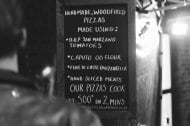 HANDMADE, WOODFIRED
PIZZAS
MADE USING:
* D.O.P SAN MARZANO
TOMATOES
* CAPUTO 00 FLOUR
* FIOR DI LATTE MOZZARELLA
* HAND SLICED MEATS
OUR PIZZAS COOK
AT 500° IN 2 MINS